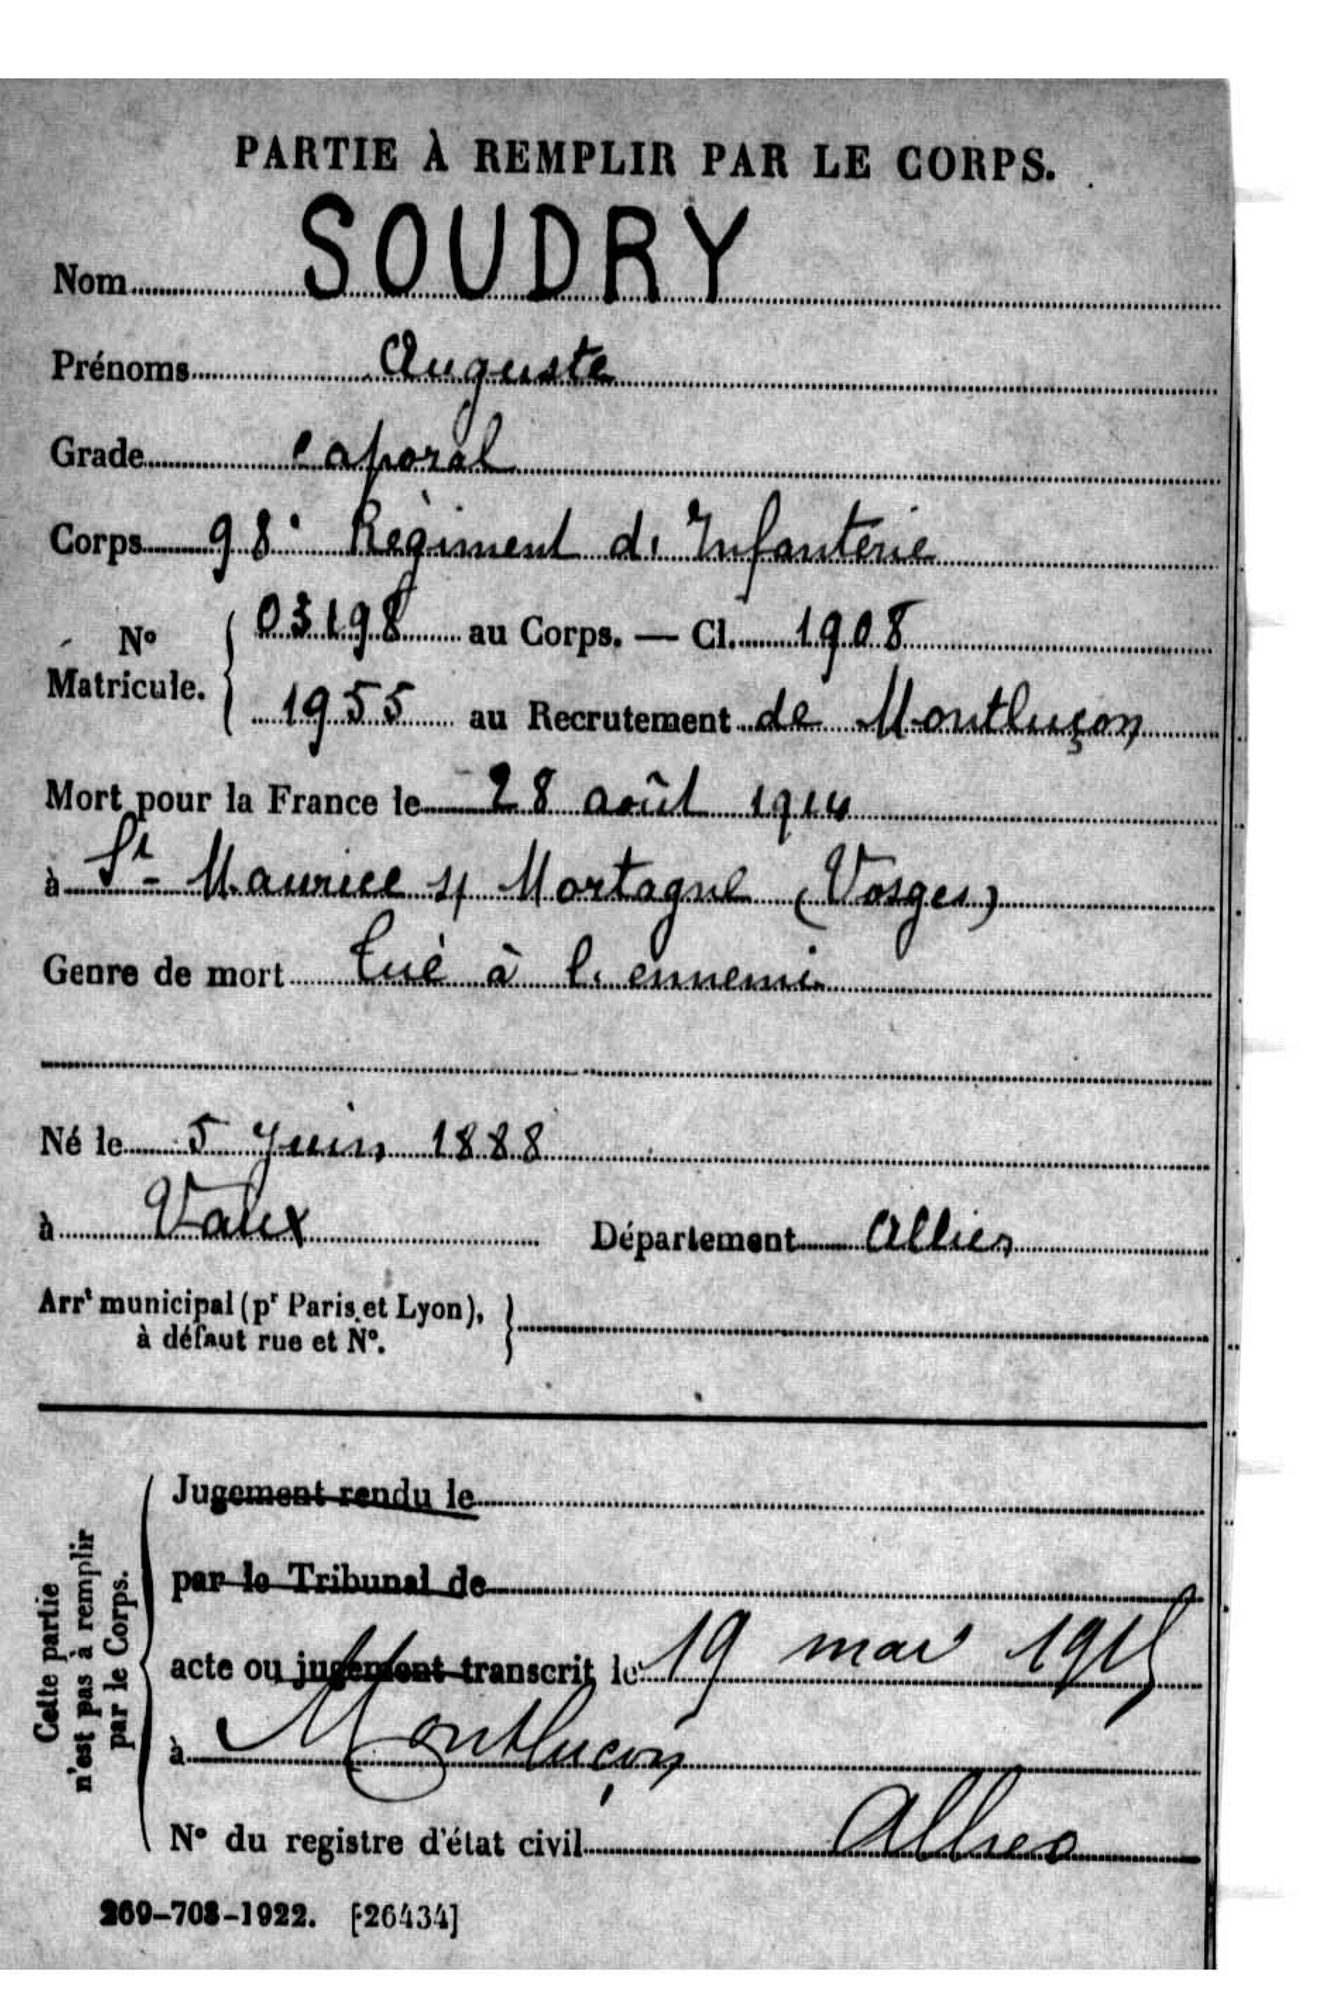 PARTIE À REMPLIR PAR LE CORPS.
Nom SOUDRY
Prénoms Auguste
Grade Caporal
Corps 98e Régiment d'Infanterie
N° Matricule. 03198 au Corps. — Cl. 1908
1955 au Recrutement de Montluçon
Mort pour la France le 28 août 1914
à St Maurice s/ Mortagne (Vosges)
Genre de mort Tué à l'ennemi
Né le 5 Juin 1888
à Vaux Département Allier
Arrt municipal (pr Paris et Lyon),
à défaut rue et N°.
Cette partie
n'est pas à remplir
par le Corps.
Jugement rendu le
par le Tribunal de
acte ou jugement transcrit le 19 mai 1915
à Montluçon
N° du registre d'état civil Allier
269-708-1922. [26434]